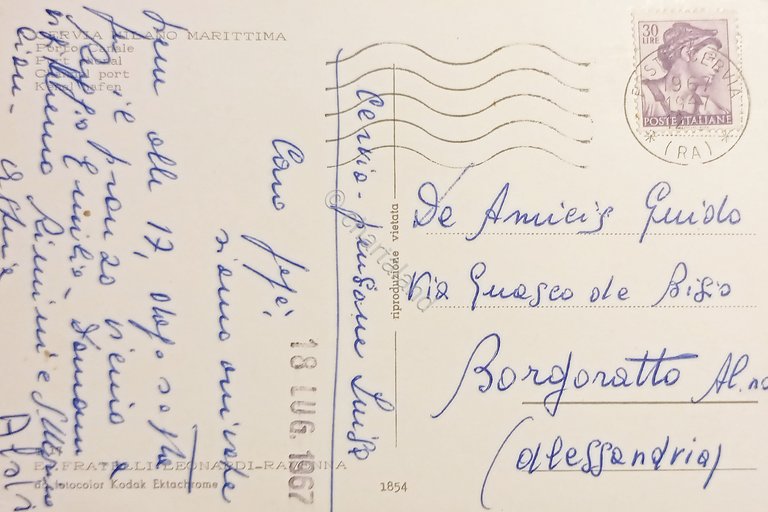 CERVIA MILANO MARITTIMA
Porto Canale
Port Canal
Canal port
Kanal hafen
30
LIRE
POSTE ITALIANE
POSTE CERVIA
1967
(RA)
Cervia - pensione Luisa
Caro Jojè,
siamo arrivate
ieri alle 17, dopo sosta
pranzo vicino a
Reggio Emilia. Domani
andremo Rimini e S. Marino
Ciao
18 LUG. 1967
De Amicis Guido
Via Guasco de Bisio
Borgoratto Al.no
(Alessandria)
riproduzione vietata
ED. FRATELLI LEONARDI - RAVENNA
da fotocolor Kodak Ektachrome
1854